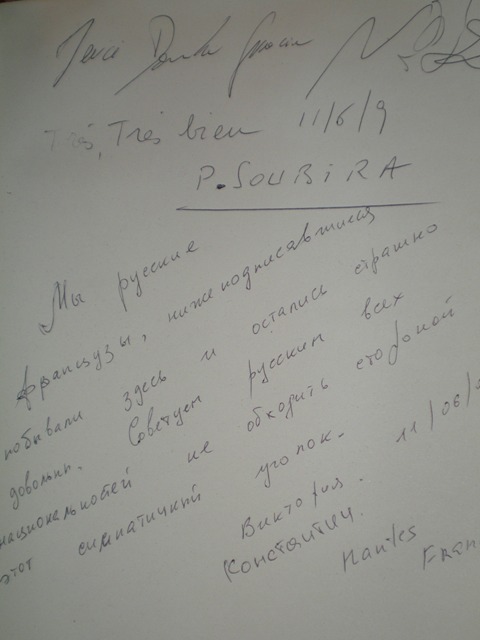 Très, Très bien 11/6/9
P. SOUBIRA
Мы русские
французы, нижеподписавшиеся
побывали здесь и остались страшно
довольны. Советуем русским всех
национальностей не обходить стороной
этот симпатичный уголок.
Виктория. 11/06/
Константин.
Nantes
Fran